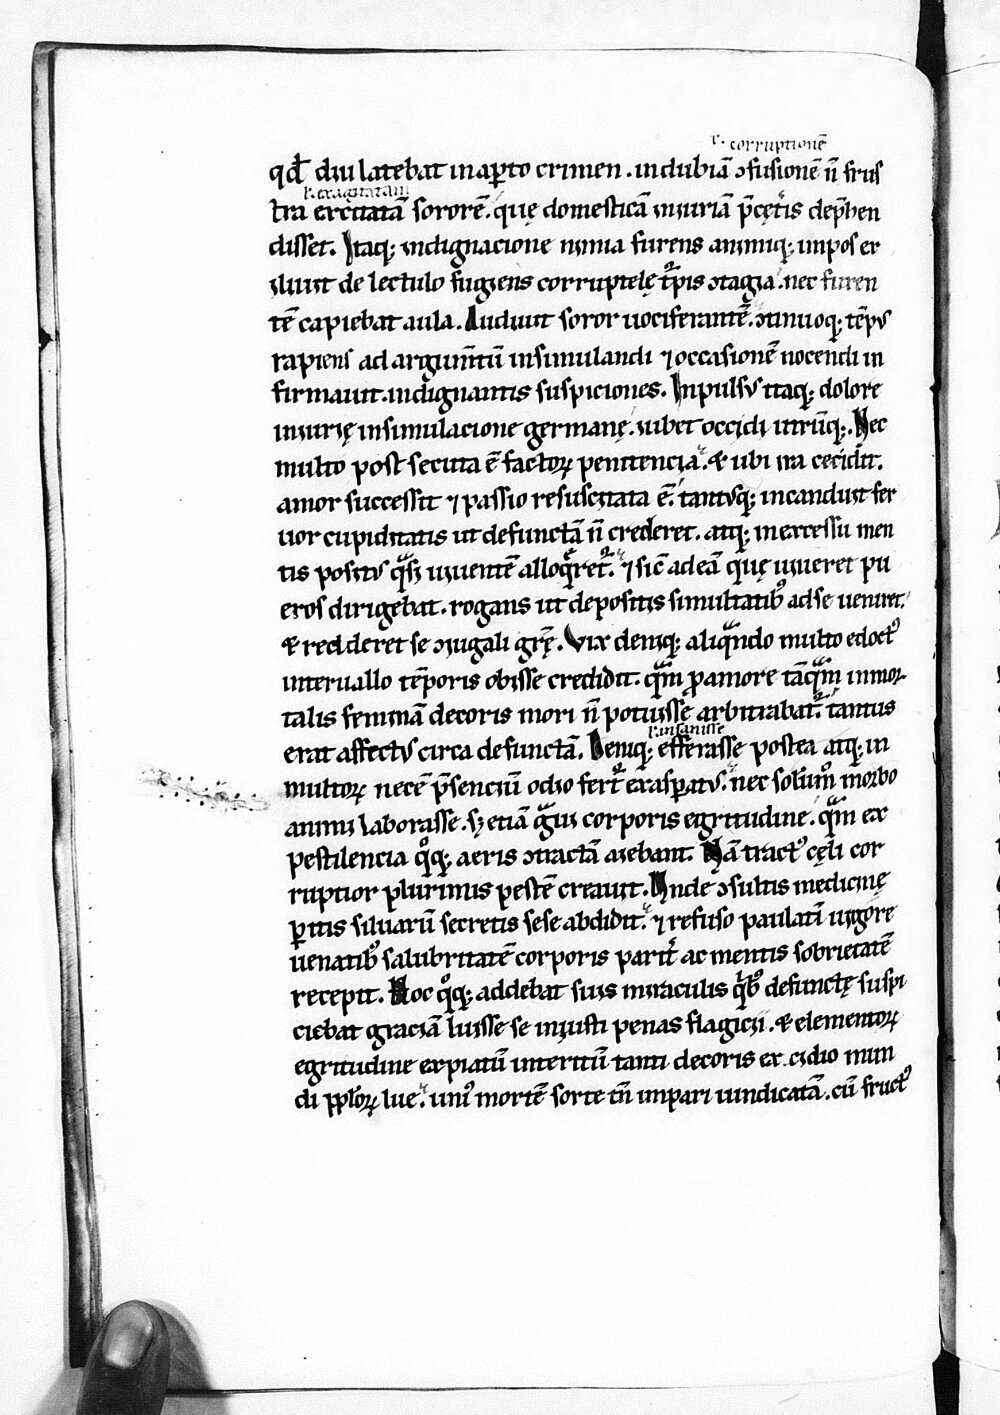 ł· corruptionē
qđ diu latebat in aꝑto crimen . in dubiā ↄfusionē ñ frus
ł· exagitatam
tra ercitatā sororē . quę domesticā iniuriā p̄cęt͛is dep̄hen
disset . Itaq; indignacione nimia furens animiq; impos ex
iluit de lectulo fugiens corruptelę t̄pis ↄtagia . nec furen
tē capiebat aula . Audiuit soror uociferantē . ↄtinuoq; tēpꝰ
rapiens ad argum̄tū insimulandi ⁊ occasionē nocendi in
firmauit . indignantis suspiciones . Inpulsꝰ itaq; dolore
iniurię insimulacione germanę . iubet occidi utrūq; . Nec
multo post secuta ē factoꝝ penitencia . & ubi ira cecidit .
amor successit ⁊ passio resuscitata ē . tantꝰq; incanduit fer
uor cupiditatis ut defunctā ñ crederet . atq; in excessu men
tis positꝰ qᵃsi uiuentē alloq̄ret͛ . ⁊ sic̄ ad eā quę uiueret pu
eros dirigebat . rogans ut depositis simultatibꝰ ad se ueniret .
& redderet se ↄiugali gr̄ę . Vix deniq; aliqᵃndo multo edoctꝰ
interuallo tēporis obisse credidit . qᵃm p̱ amore tāqᵃm inmor
talis feminā decoris mori ñ potuisse arbitrabat͛ . tantus
erat affectꝰ circa defunctā . Deniq; efferasse postea atq; in
ł· insanisse
multoꝝ necē p̄senciū odio fert͛ exaspatꝰ . nec solumͦ morbo
animi laborasse . sꝫ etiā gᵃui corporis egritudine . qᵃm ex
pestilencia qͦq; aeris ↄtractā aiebant . Nā tractꝰ cęli cor
ruptior plurimus pestē creauit . Vnde ↄsultis medicinę
ꝑitis siluarū secretis sese abdidit . ⁊ refuso paulatī uigore
uenatibꝰ salubritatē corporis parit͛ ac mentis sobrietatē
recepit . Hoc qͦq; addebat suis miraculis qᵃbꝰ defunctę suspi
ciebat graciā luisse se iniusti penas flagicii . & elementoꝝ
egritudine expiatū interitū tanti decoris ex cidio mun
di pp̄loꝝ lue . uniꝰ mortē sorte tn̄ impari uindicatā . cū fructꝰ